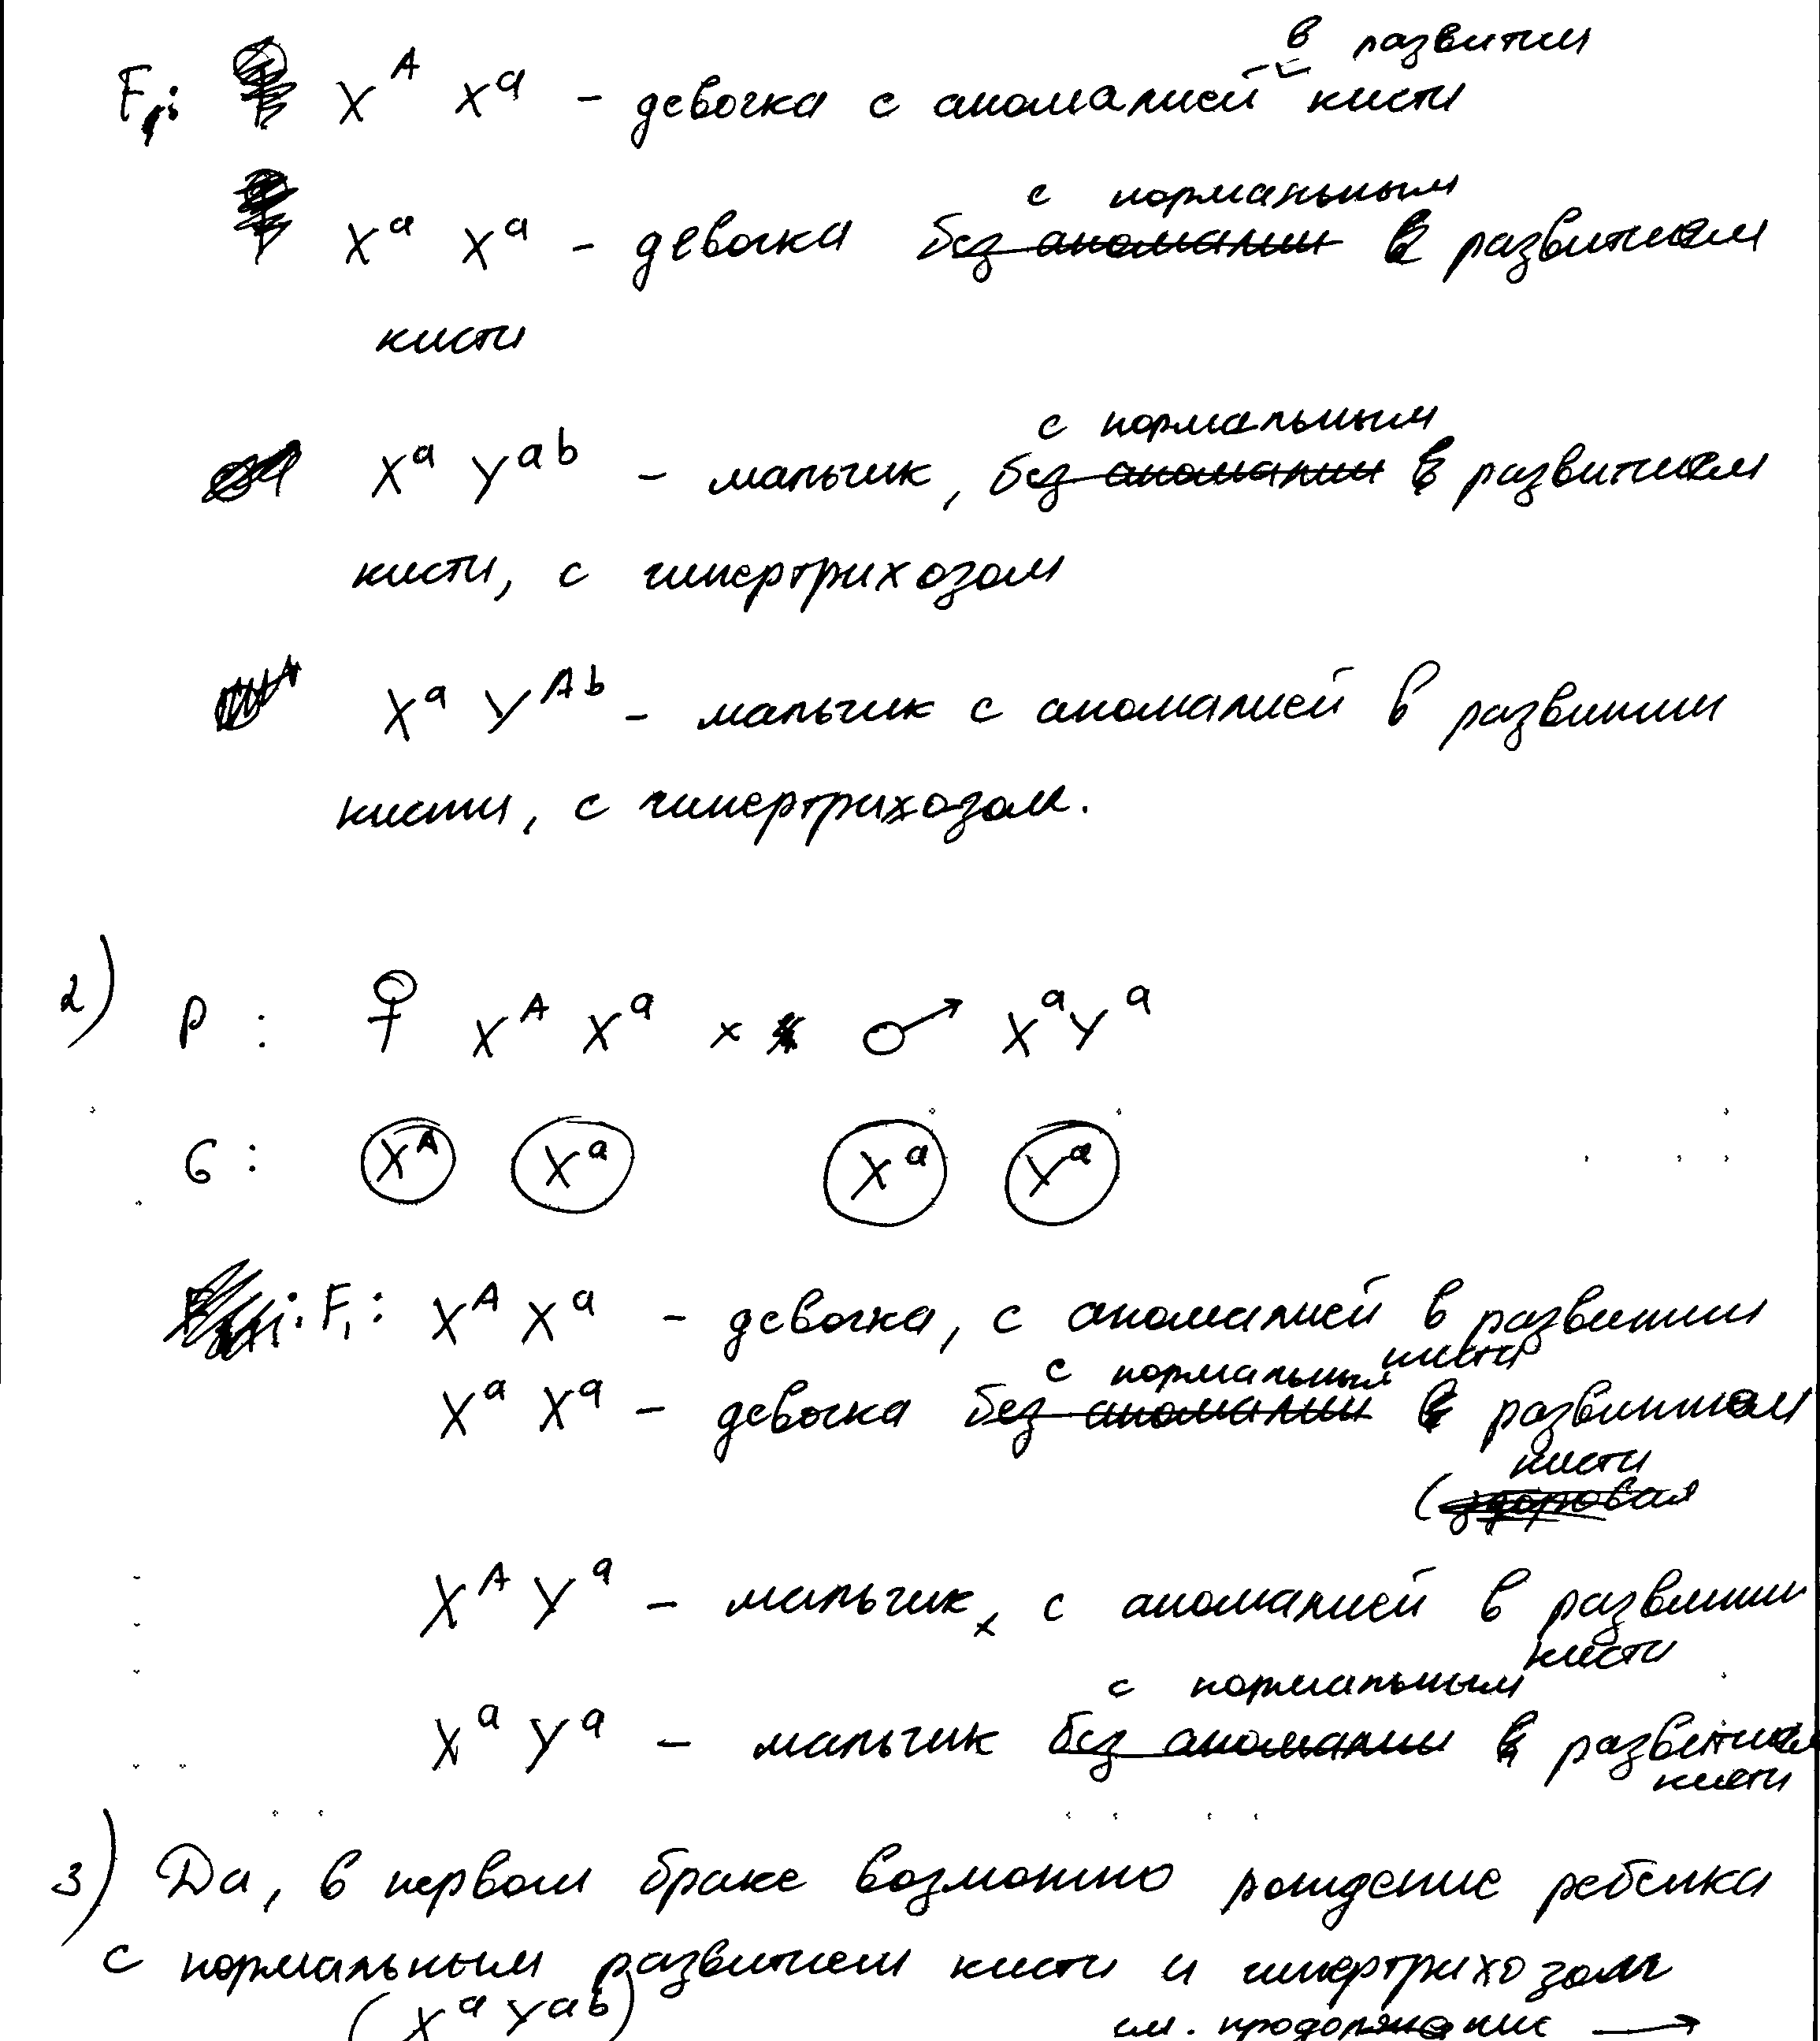 F₁: X^A X^a – девочка с аномалией в развитии кисти
X^a X^a – девочка без аномалии с нормальным развитием
кисти
X^a Y^ab – мальчик, без аномалии с нормальным развитием
кисти, с гипертрихозом
X^a Y^Ab – мальчик с аномалией в развитии
кисти, с гипертрихозом.
2) P : ♀ X^A X^a × ♂ X^a Y^a
G : X^A X^a X^a Y^a
F₁: X^A X^a – девочка, с аномалией в развитии кисти
X^a X^a – девочка без аномалии с нормальным развитием
кисти
(здоровая
X^A Y^a – мальчик, с аномалией в развитии
кисти
X^a Y^a – мальчик без аномалии с нормальным развитием
кисти
3) Да, в первом браке возможно рождение ребенка
с нормальным развитием кисти и гипертрихозом
(X^a Y^ab) см. продолжение →